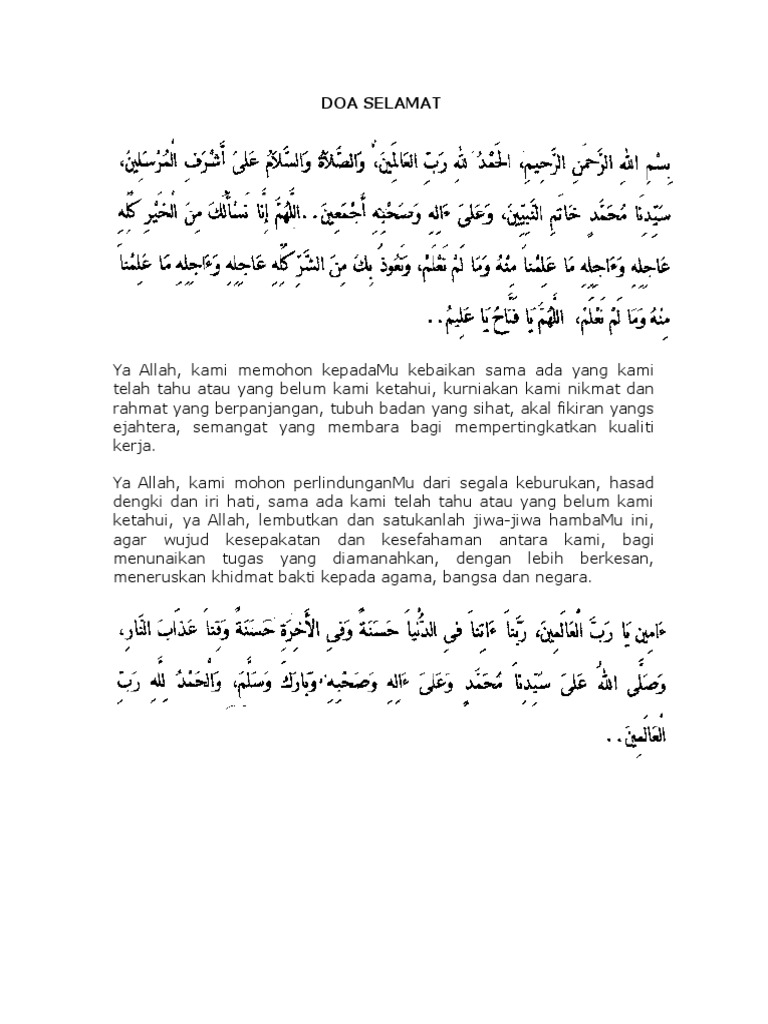 DOA SELAMAT
بِسْمِ اللهِ الرَّحْمٰنِ الرَّحِيمِ، الْحَمْدُ لِلّٰهِ رَبِّ الْعَالَمِينَ، وَالصَّلَاةُ وَالسَّلَامُ عَلَىٰ أَشْرَفِ الْمُرْسَلِينَ،
سَيِّدِنَا مُحَمَّدٍ خَاتَمِ النَّبِيِّينَ، وَعَلَىٰ ءَالِهِ وَصَحْبِهِ أَجْمَعِينَ..اللَّهُمَّ إِنَّا نَسْأَلُكَ مِنَ الْخَيْرِ كُلِّهِ
عَاجِلِهِ وَءَاجِلِهِ مَا عَلِمْنَا مِنْهُ وَمَا لَمْ نَعْلَمْ، وَنَعُوذُ بِكَ مِنَ الشَّرِّ كُلِّهِ عَاجِلِهِ وَءَاجِلِهِ مَا عَلِمْنَا
مِنْهُ وَمَا لَمْ نَعْلَمْ، اللَّهُمَّ يَا فَتَّاحُ يَا عَلِيمُ..
Ya Allah, kami memohon kepadaMu kebaikan sama ada yang kami
telah tahu atau yang belum kami ketahui, kurniakan kami nikmat dan
rahmat yang berpanjangan, tubuh badan yang sihat, akal fikiran yangs
ejahtera, semangat yang membara bagi mempertingkatkan kualiti
kerja.
Ya Allah, kami mohon perlindunganMu dari segala keburukan, hasad
dengki dan iri hati, sama ada kami telah tahu atau yang belum kami
ketahui, ya Allah, lembutkan dan satukanlah jiwa-jiwa hambaMu ini,
agar wujud kesepakatan dan kesefahaman antara kami, bagi
menunaikan tugas yang diamanahkan, dengan lebih berkesan,
meneruskan khidmat bakti kepada agama, bangsa dan negara.
ءَامِين يَا رَبَّ الْعَالَمِينَ، رَبَّنَا ءَاتِنَا فِي الدُّنْيَا حَسَنَةً وَفِي الْأَخِرَةِ حَسَنَةً وَقِنَا عَذَابَ النَّارِ،
وَصَلَّى اللهُ عَلَىٰ سَيِّدِنَا مُحَمَّدٍ وَعَلَىٰ ءَالِهِ وَصَحْبِهِ وَبَارَكَ وَسَلَّمَ، وَالْحَمْدُ لِلّٰهِ رَبِّ
الْعَالَمِينَ..